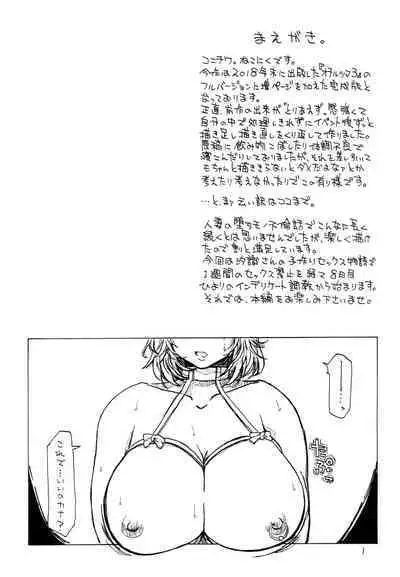 まえがき。
コニチワ。ねこにくです。
今作は2018年末に出版した『オルツマ3』の
フルバージョンと増ページを加えた完成版と
なっております。
正直、前作の出来が"とりあえず"感強くて
自分の中で処理しきれずにイベント後ずっと
描き足し描き直しをくり返して作りました。
原稿に飲み物こぼしたり体調不良で
寝こんだりしておりましたが、それを差し引いて
もちゃんと描ききらないとダメだよなァとか
考えたり考えなかったりでこの有り様です。
…と、まァ言い訳はココまで。
人妻の堕ちモノ不倫話でこんなに長く
続くとは思いませんでしたが、楽しく描け
たので割と満足しています。
今回は汐織さんの子作りセックス物語で
1週間のセックス禁止を経て8日目
ひよりのインデリケート調教から始まります。
それでは、本編をお楽しみ下さいませ。
1